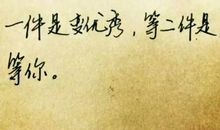 一件是变优秀，等二件是
等你。